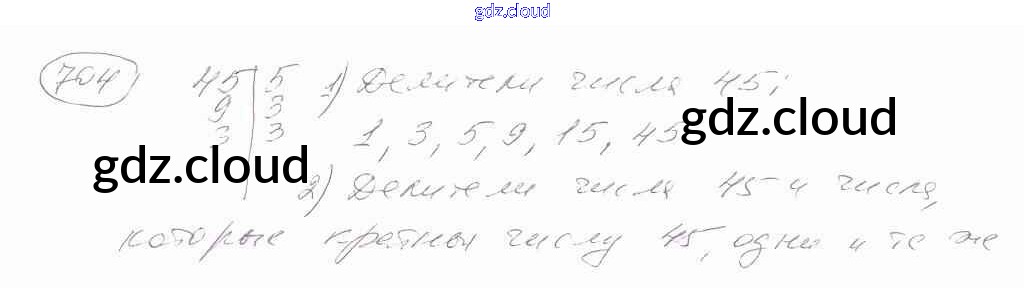 gdz.cloud
704) 45|5 1) Делители числа 45;
9|3 gdz.cloud
3|3 1, 3, 5, 9, 15, 45
gdz.cloud
2) Делители числа 45 и числа,
которые кратны числу 45, одни и те же